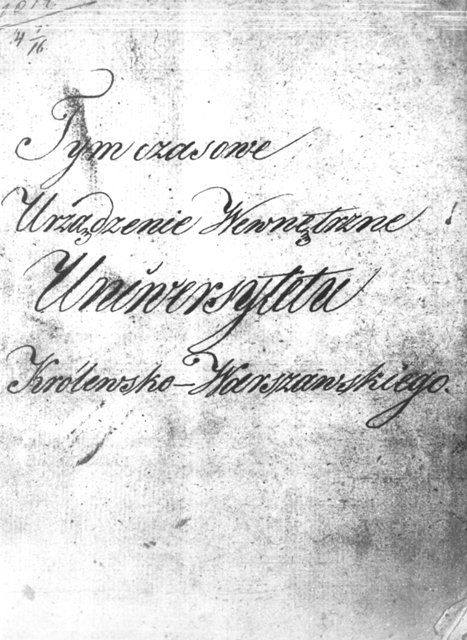 4 I/16
Tymczasowe
Urządzenie Wewnętrzne
Uniwersytetu
Królewsko-Warszawskiego.